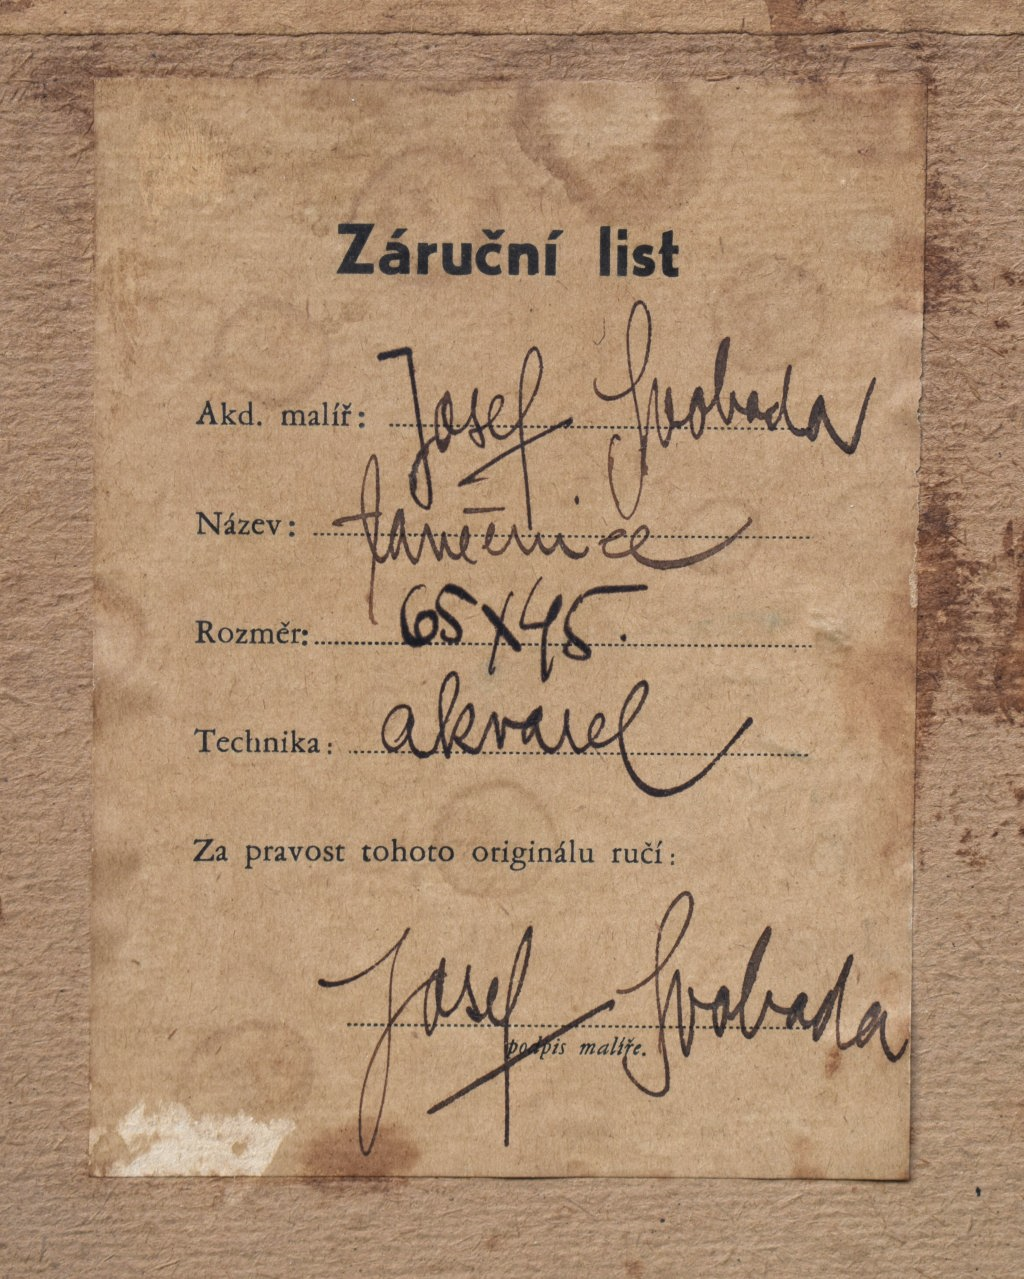 Záruční list
Akd. malíř: Josef Svoboda
Název: tanečnice
Rozměr: 65x45.
Technika: akvarel
Za pravost tohoto originálu ručí:
Josef Svoboda
podpis malíře.